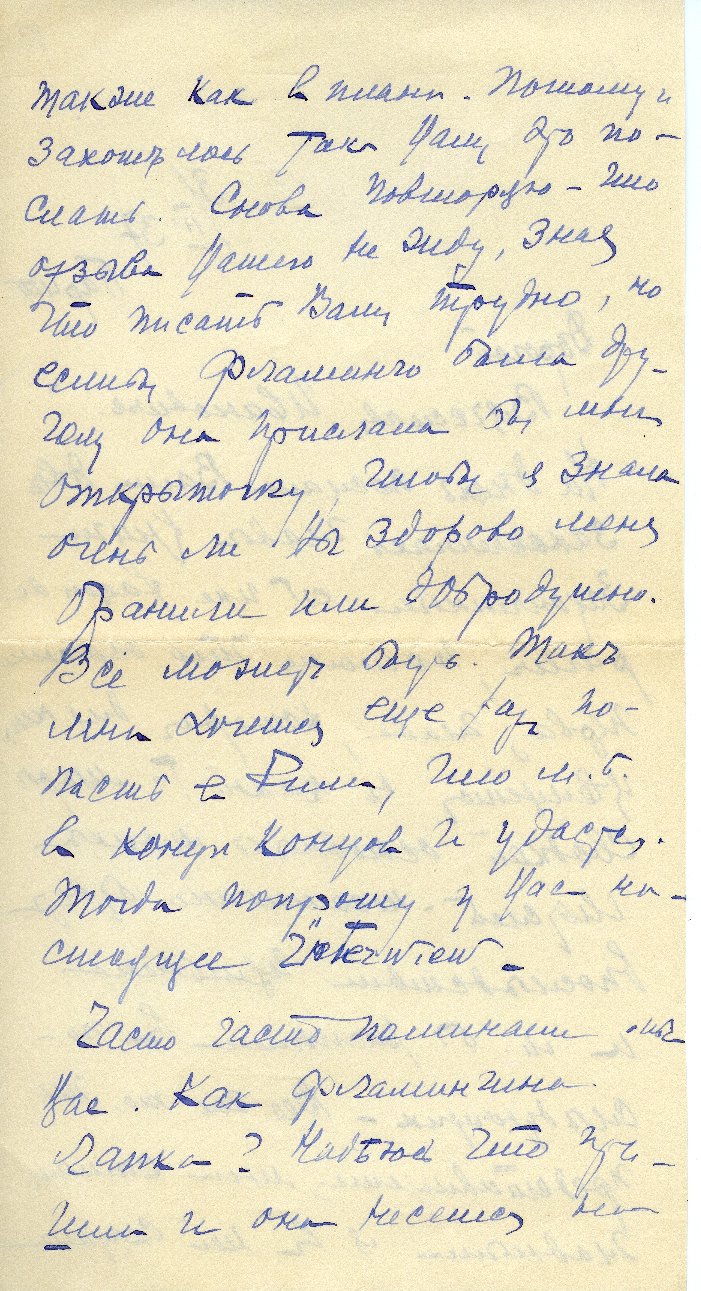 также как в плани. Потому и
захотѣлось таки Вамъ это по-
слать. Снова повторяю – что
отзыва Вашего не жду, зная
что писать Вамъ трудно, но
еслибъ Фламинго была дру-
гому она прислала бы мнѣ
открыточку, чтобъ я знала
очень ли Вы здорово меня
бранили или добродушно.
Все можетъ быть. Такъ
мнѣ хочется еще разъ по-
пасть в Римъ, что м. б.
в концѣ концовъ и удастся.
Тогда попрошу у Васъ на-
стоящее
Часто часто поминаем мы
Вас. Как Фламингина
лапка? Надѣюсь что при-
шла и она несется на